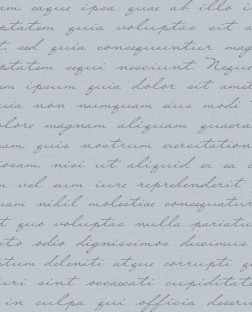 em eaque ipsa quae ab illo i
ptatem quia voluptas sit a
t sed quia consequuntur mag
ptatem sequi nesciunt Neque
em ipsum quia dolor sit amet
uia non numquam eius modi
olore magnam aliquam quaera
am, quis nostrum exercitation
iosam, nisi ut aliquid ex ea c
m vel eum iure reprehenderit
uam nihil molestiae consequatur
t quo voluptas nulla pariatu
sto odio dignissimos ducimus
tum deleniti atque corrupti q
uri sint occaecati cupiditate
in culpa qui officia deseru